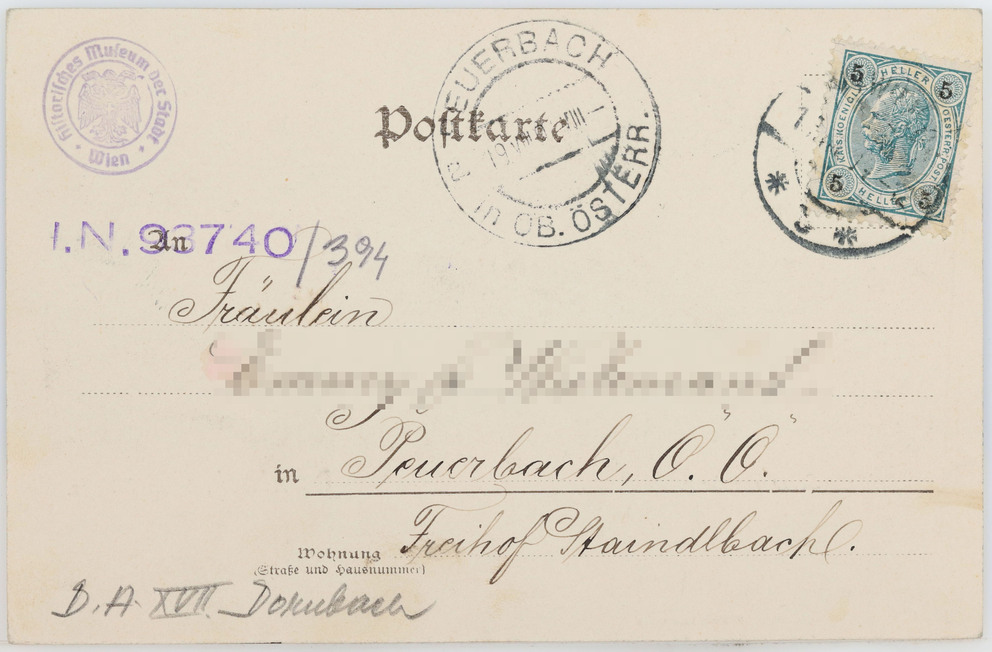 Historisches Museum der Stadt
Wien
PEUERBACH
in OB. ÖSTERR.
Postkarte
5 HELLER 5
KAIS. KOENIGL. OESTERR. POST.
5 HELLER 5
3
I.N. 93740/394
An
Fräulein
in Peuerbach, O.Ö.
Freihof Staindlbach.
Wohnung
(Straße und Hausnummer)
B.A. XVII. Dornbach